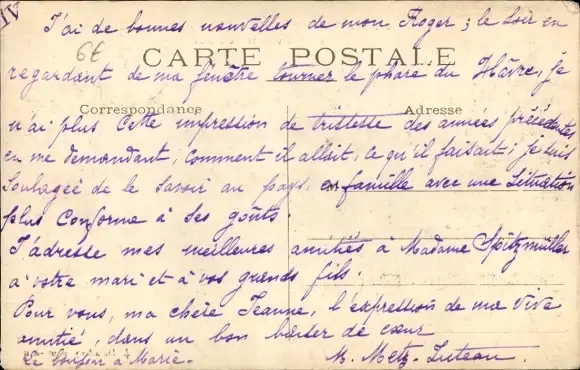 IV
J'ai de bonnes nouvelles de mon Roger ; le soir en
6t
CARTE POSTALE
regardant de ma fenêtre tourner le phare du Hâvre, je
Correspondance
Adresse
n'ai plus cette impression de tristesse des années précédentes
en me demandant, comment il allait, ce qu'il faisait ; je suis
soulagée de le savoir au pays, en famille avec une situation
plus conforme à ses goûts.
J'adresse mes meilleures amitiés à Madame Spitzmüller
à votre mari et à vos grands fils.
Pour vous, ma chère Jeanne, l'expression de ma vive
amitié, dans un bon baiser de cœur
Le bonjour à Marie.
M. Metz-Luteau.